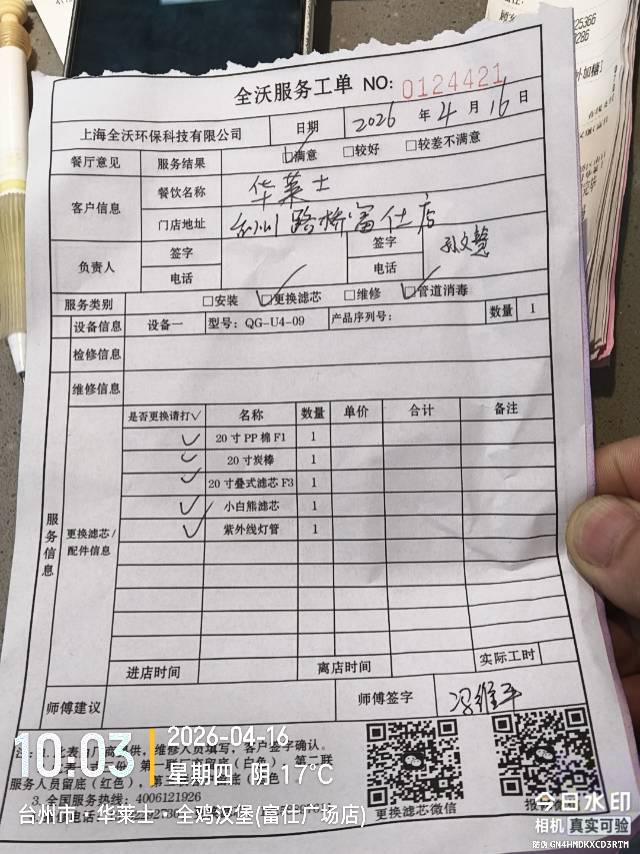 全沃服务工单 NO: 0124421
上海全沃环保科技有限公司 日期 2026 年 4 月 16 日
餐厅意见 服务结果 ☑满意 □较好 □较差不满意
客户信息 餐饮名称 华莱士
门店地址 台州路桥富仕店
负责人 签字 签字
电话 电话
服务类别 □安装 ☑更换滤芯 □维修 ☑管道消毒
设备信息 设备一 型号: QG-U4-09 产品序列号: 数量 1
检修信息
维修信息
服务信息 更换滤芯/配件信息 是否更换请打√ 名称 数量 单价 合计 备注
√ 20寸PP棉F1 1
√ 20寸炭棒 1
√ 20寸叠式滤芯F3 1
√ 小白熊滤芯 1
√ 紫外线灯管 1
进店时间 离店时间 实际工时
师傅建议 师傅签字 冯维平
服务人员留底(红色)
3. 全国服务热线: 4006121926
更换滤芯微信
10:03 2026-04-16
星期四 阴 17℃
台州市·华莱士·全鸡汉堡(富仕广场店)
今日水印
相机 真实可验
防伪 GN4HMDKXCD3RTM